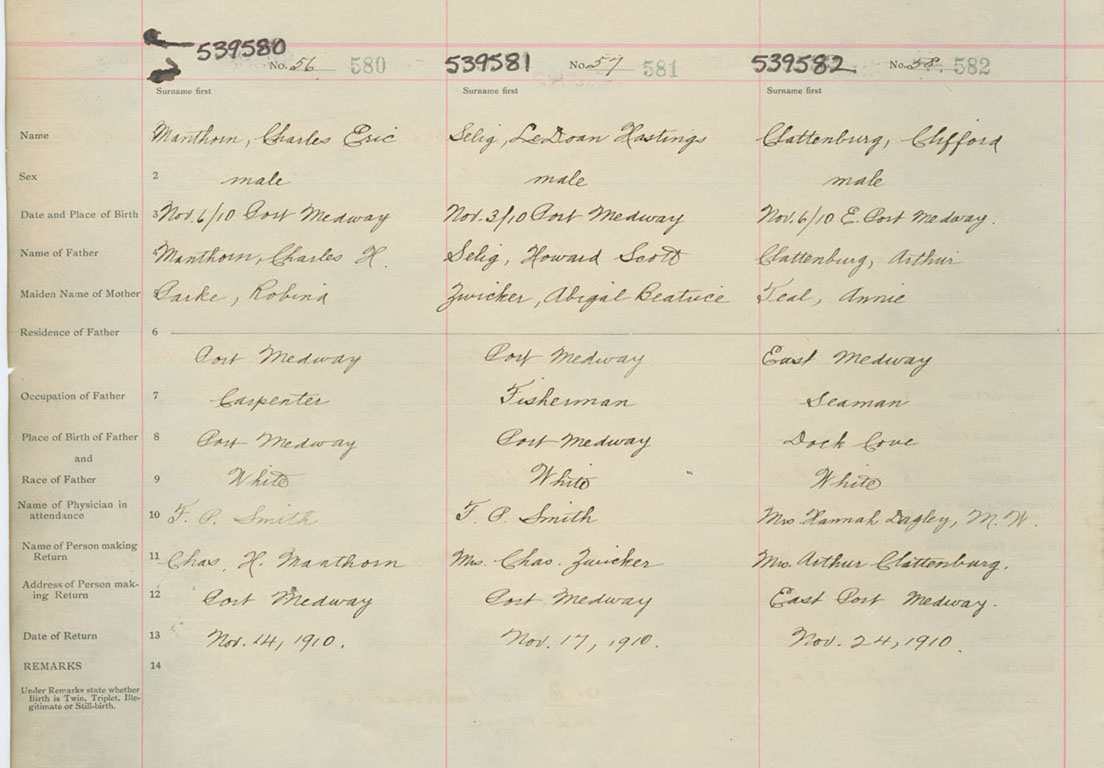 539580 No. 56 580 539581 No. 57 581 539582 No. 58 582
Surname first Surname first Surname first
Name Manthorn, Charles Eric Selig, LeDoan Hastings Clattenburg, Clifford
Sex 2 male male male
Date and Place of Birth 3 Nov. 6/10 Port Medway Nov. 3/10 Port Medway Nov. 6/10 E. Port Medway.
Name of Father Manthorn, Charles H. Selig, Howard Scott Clattenburg, Arthur
Maiden Name of Mother 5 Parke, Robina Zwicker, Abigal Beatrice Teal, Annie
Residence of Father 6
Port Medway Port Medway East Medway
Occupation of Father 7 Carpenter Fisherman Seaman
Place of Birth of Father 8 Port Medway Port Medway Dock Cove
and
Race of Father 9 White White White
Name of Physician in
attendance 10 F. P. Smith F. P. Smith Mrs Hannah Dagley, M. W.
Name of Person making
Return 11 Chas. H. Manthorn Mrs. Chas. Zwicker Mrs. Arthur Clattenburg.
Address of Person mak-
ing Return 12 Port Medway Port Medway East Port Medway.
Date of Return 13 Nov. 14, 1910. Nov. 17, 1910. Nov. 24, 1910.
REMARKS 14
Under Remarks state whether
Birth is Twin, Triplet, Ille-
gitimate or Still-birth.